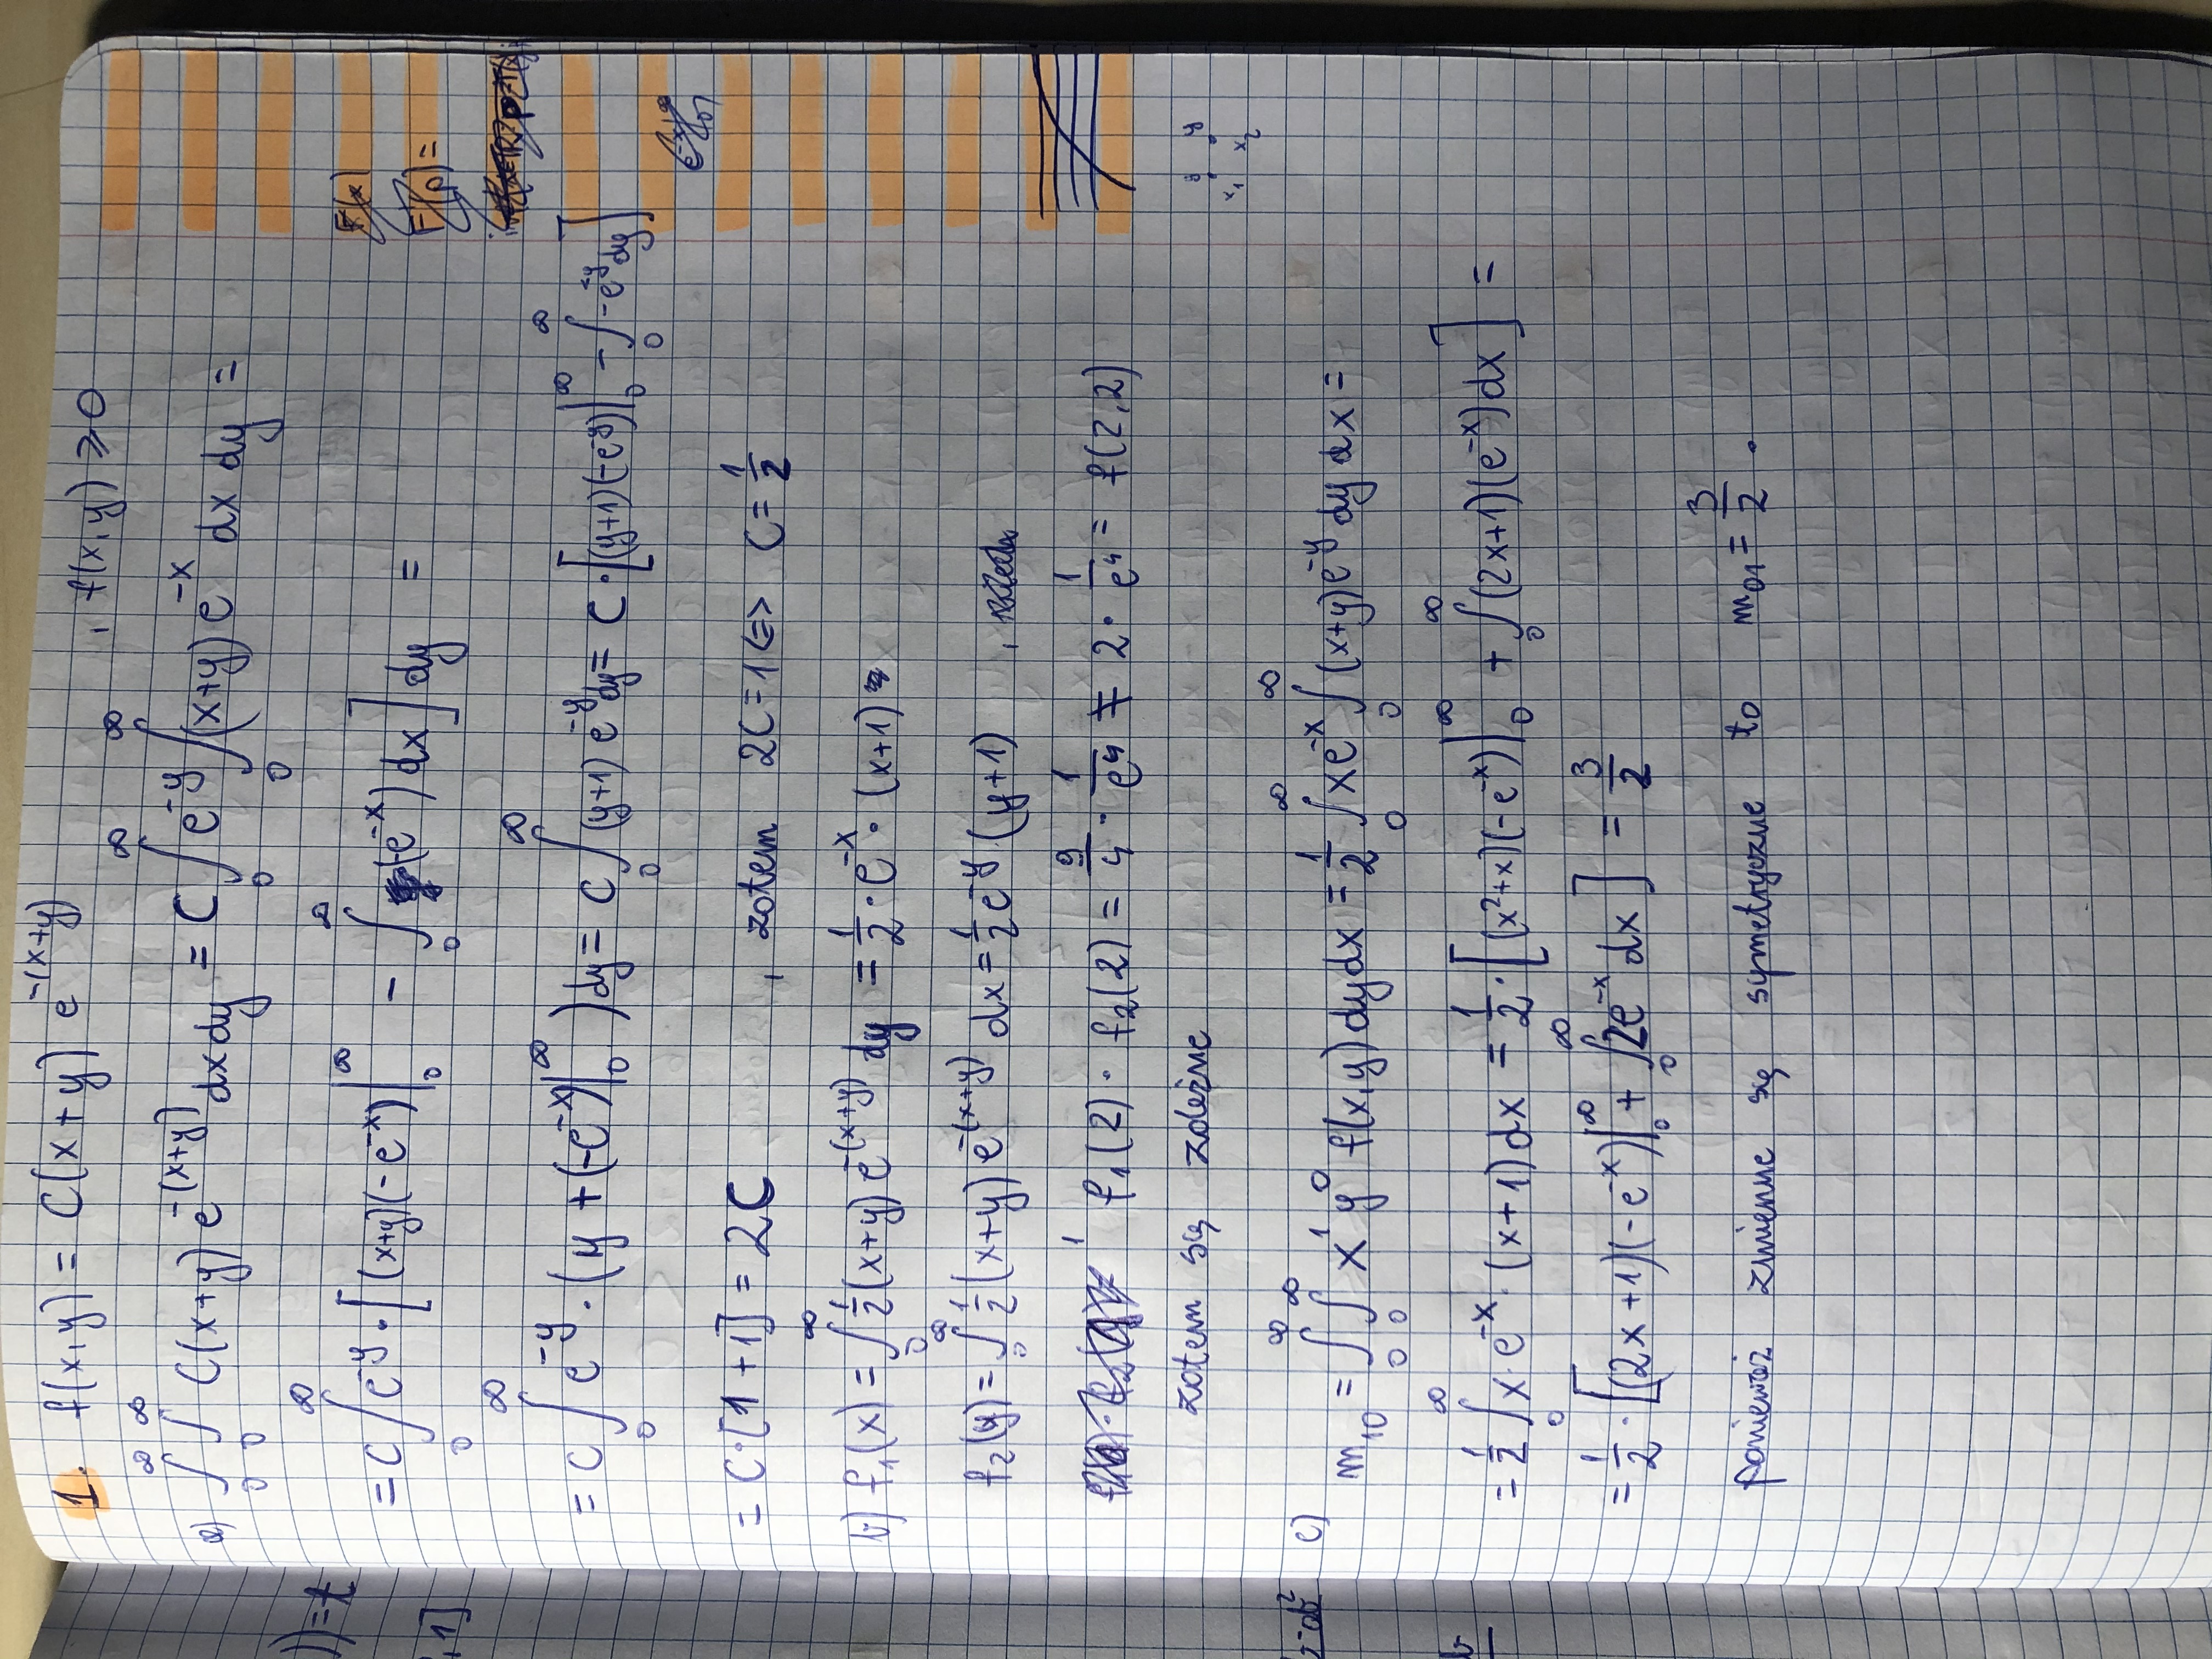 1. f(x,y) = C(x+y) e^{-(x+y)} , f(x,y) ⩾ 0
a) ∫_0^∞ ∫_0^∞ C(x+y) e^{-(x+y)} dx dy = C ∫_0^∞ e^{-y} ∫_0^∞ (x+y) e^{-x} dx dy =
= C ∫_0^∞ e^{-y} · [ (x+y)(-e^{-x}) |_0^∞ - ∫_0^∞ (-e^{-x}) dx ] dy =
= C ∫_0^∞ e^{-y} · (y + (-e^{-x}) |_0^∞ ) dy = C ∫_0^∞ (y+1) e^{-y} dy = C · [(y+1)(-e^{-y}) |_0^∞ - ∫_0^∞ -e^{-y} dy]
= C · [1 + 1] = 2C , zatem 2C = 1 <=> C = 1/2
b) f_1(x) = ∫_0^∞ 1/2 (x+y) e^{-(x+y)} dy = 1/2 · e^{-x} · (x+1)
f_2(y) = ∫_0^∞ 1/2 (x+y) e^{-(x+y)} dx = 1/2 e^{-y} (y+1) ,
f_1(2) · f_2(2) = 9/4 · 1/e^4 ≠ 2 · 1/e^4 = f(2,2)
zatem są zależne
c) m_{10} = ∫_0^∞ ∫_0^∞ x^1 y^0 f(x,y) dy dx = 1/2 ∫_0^∞ x e^{-x} ∫_0^∞ (x+y) e^{-y} dy dx =
= 1/2 ∫_0^∞ x · e^{-x} · (x+1) dx = 1/2 · [ (x^2+x)(-e^{-x}) |_0^∞ + ∫_0^∞ (2x+1)(e^{-x}) dx ] =
= 1/2 · [(2x+1)(-e^{-x}) |_0^∞ + ∫_0^∞ 2e^{-x} dx ] = 3/2
ponieważ zmienne są symetryczne to m_{01} = 3/2 .
)) = t
, 1]
F(x)
F(p) =
y y
x_1 x_2